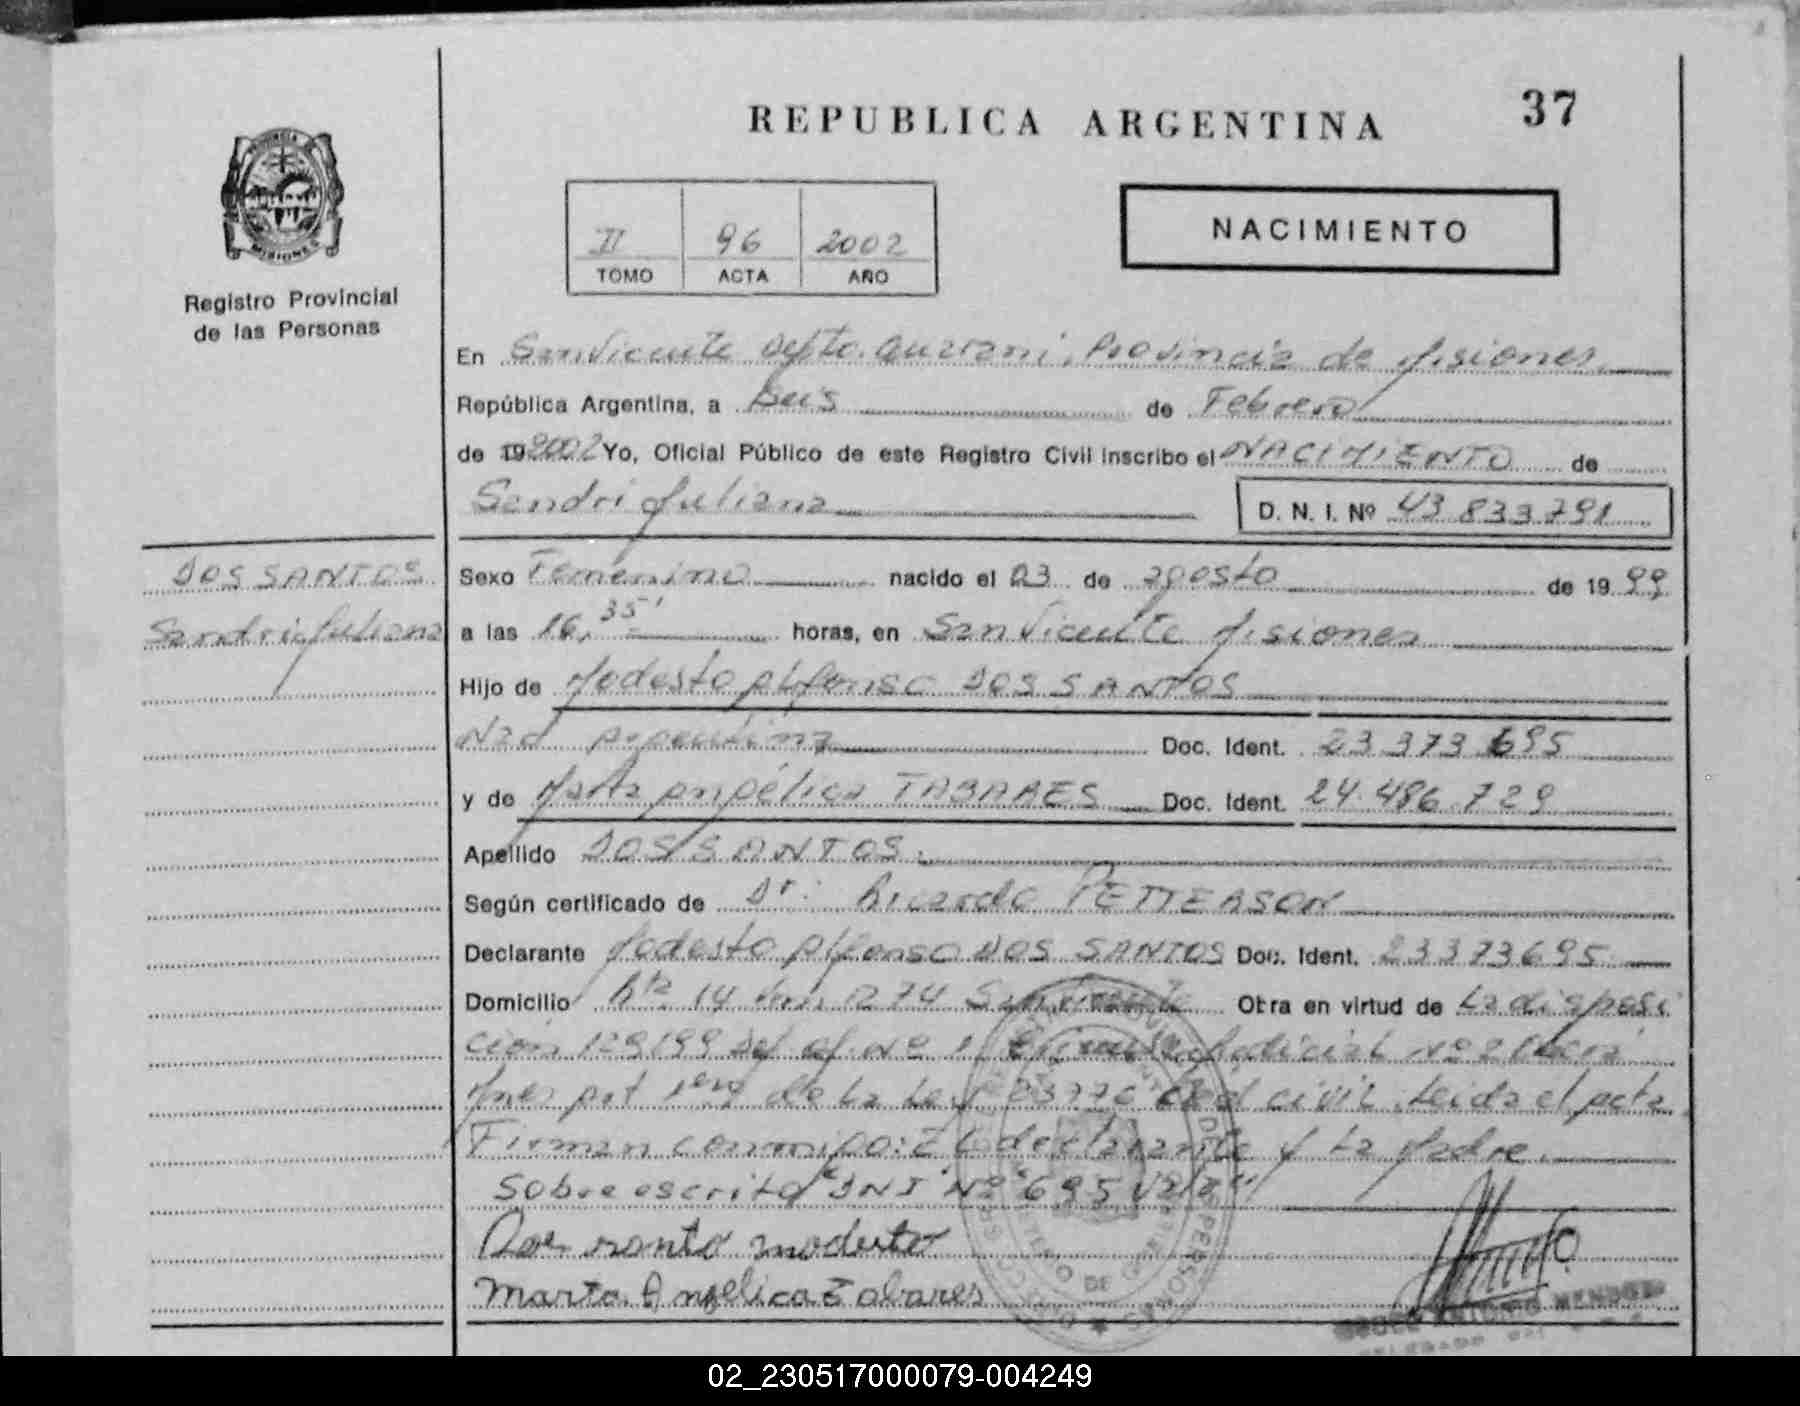 REPUBLICA ARGENTINA
37
PROVINCIA DE
MISIONES
Registro Provincial
de las Personas
II 96 2002
TOMO ACTA AÑO
NACIMIENTO
En San Vicente Dpto. Guarani, Provincia de Misiones
República Argentina, a Seis de Febrero
de 19 2002 Yo, Oficial Público de este Registro Civil inscribo el NACIMIENTO de
Sandri Juliana
D. N. I. Nº 43 833 791
DOS SANTOS
Sandri Juliana
Sexo Femenino nacido el 03 de agosto de 19 99
a las 16, 35' horas, en San Vicente Misiones
Hijo de Modesto Alfonso DOS SANTOS
Nac Argentina Doc. Ident. 23 373 695
y de Marta Angélica TABARES Doc. Ident. 24.486.729
Apellido DOS SANTOS.
Según certificado de Dr: Ricardo PETTERSON
Declarante Modesto Alfonso DOS SANTOS Doc. Ident. 23373695
Domicilio Rta 14 Km 1274 San Vicente Otra en virtud de La disposi
ción 129/99 Nº 1 Judicial Nº 2
Art 1ero de La Ley 23776 civil. Leida el acta
Firman conmigo: El declarante y La Madre.
Sobre escrito "DNI Nº 695 Vale"
Dos santo modesto
Marta Angelica Tabares
ANTONIO MENDEZ
02_230517000079-004249